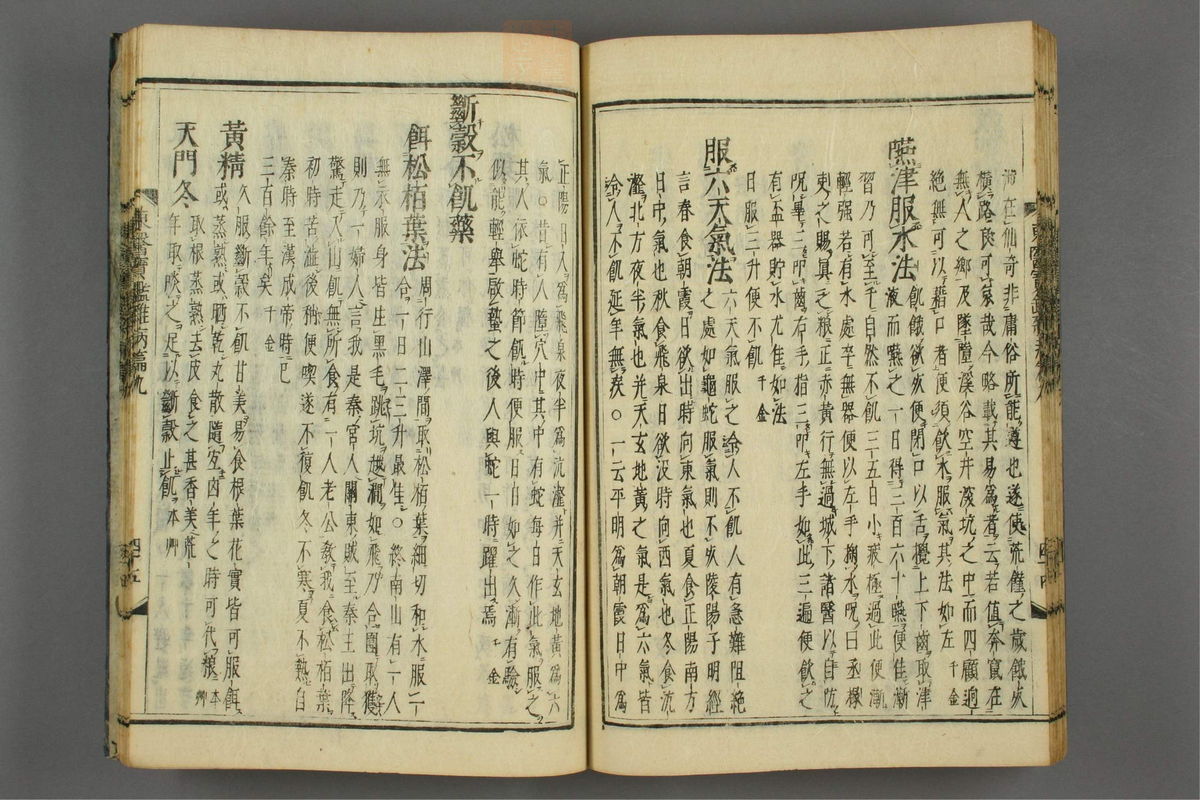 常在仙奇非庸俗所能遵也遂使荒饉之歲餓死
橫路良可哀哉今略載其易爲者云若値奔竄在
無人之鄕及墜墮溪谷空井深坑之中而四顧逈
絶無可以藉口者便須飮水服氣其法如左千金
嚥津服水法飢餓欲死便閉口以舌攪上下齒取津
液而嚥之一日得三百六十嚥便佳漸
習乃可至千自然不飢三五日小疲極過此便漸
輕强若有水處卒無器便以左手掬水呪曰丞椽
吏之賜眞乏粮正赤黃行無過城下諸醫以自防
呪畢三叩齒右手指三叩左手如此三遍便飮之
有盃器貯水尤佳如法
日服三升便不飢千金
服六天氣法六天氣服之令人不飢人有急難阻絶
之處如龜蛇服氣則不死陵陽子明經
言春食朝霞日欲出時向東氣也夏食正陽南方
日中氣也秋食飛泉日欲沒時向西氣也冬食沆
瀣北方夜半氣也幷天玄地黃之氣是爲六氣皆
令人不飢延年無疾○一云平明爲朝霞日中爲
正陽日入爲飛泉夜半爲沆瀣幷天玄地黃爲六
氣○昔有人墮穴中其中有蛇每日作此氣服之
其人依蛇時節飢時便服日日如之久漸有驗
似能輕擧啓蟄之後人與蛇一時躍出焉千金
斷穀不飢藥
餌松栢葉法周行山澤間取松栢葉細切和水服二
合一日二三升最佳○終南山有一人
無衣服身皆生黑毛跳坑越澗如飛乃令圍取獲
則乃一婦人言我是秦宮人關東賊至秦王出降
驚走入山飢無所食有一老公敎我食松栢葉
初時苦澁後稍便喫遂不復飢冬不寒夏不熱自
秦時至漢成帝時已
三百餘年矣千金
黃精久服斷穀不飢甘美易食根葉花實皆可服餌
或蒸熟或晒乾丸散隨宜凶年之時可代粮本草
取根蒸熟去皮食之甚香美荒
天門冬年取啖之足以斷穀止飢本艸
東醫寶鑑雜病篇九